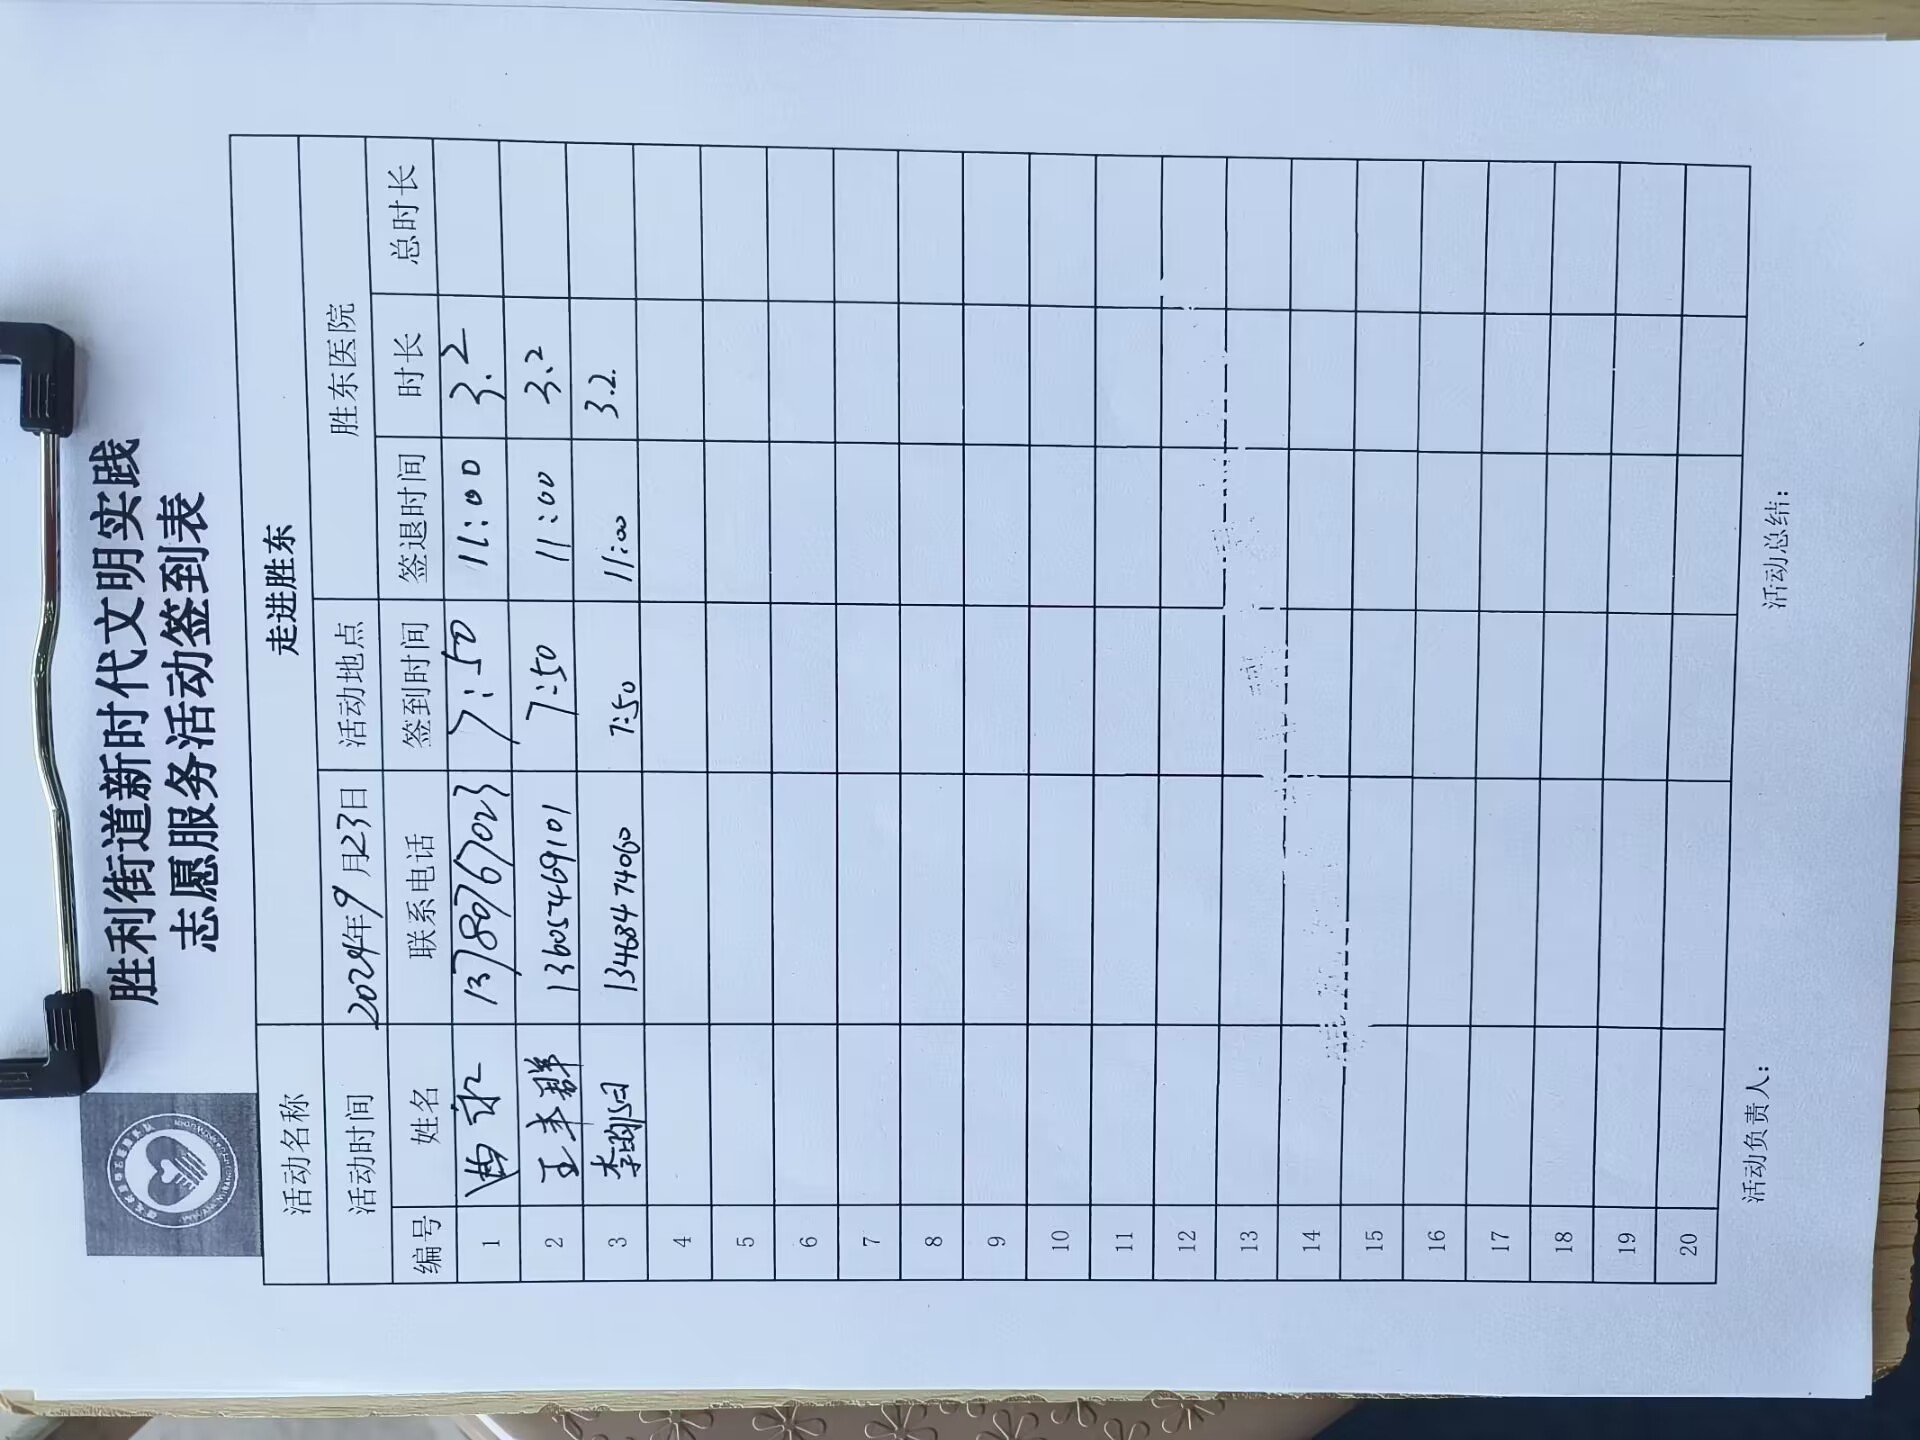 胜利街道新时代文明实践
志愿服务活动签到表
活动名称 走进胜东
活动时间 2024年9月23日 活动地点 胜东医院
编号 姓名 联系电话 签到时间 签退时间 时长 总时长
1 13780767023 7:50 11:00 3.2
2 王丰群 13605469101 7:50 11:00 3.2
3 李 13468474060 7:50 11:00 3.2.
4
5
6
7
8
9
10
11
12
13
14
15
16
17
18
19
20
活动负责人： 活动总结：